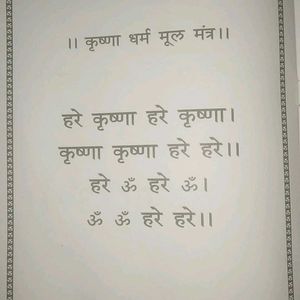 ।। कृष्णा धर्म मूल मंत्र।।
हरे कृष्णा हरे कृष्णा।
कृष्णा कृष्णा हरे हरे।।
हरे ॐ हरे ॐ।
ॐ ॐ हरे हरे।।